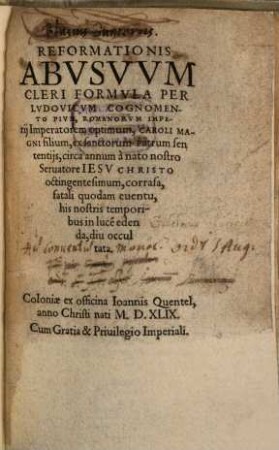 REFORMATIONIS
ABVSVVM
CLERI FORMVLA PER
LVDOVICVM COGNOMEN-
TO PIVM, ROMENORVM IMPE
rij Imperatorem optimum, CAROLI MA
GNI filium, ex sanctorum Patrum sen
tentijs, circa annum à nato nostro
Seruatore IESV CHRISTO
octingentesimum, corrasa,
fatali quodam euentu,
his nostris tempori-
bus in lucē eden
da, diu occul
tata.
Ad conuentū Monac. Ord S Aug.
Coloniæ ex officina Ioannis Quentel,
anno Christi nati M. D. XLIX.
Cum Gratia & Priuilegio Imperiali.